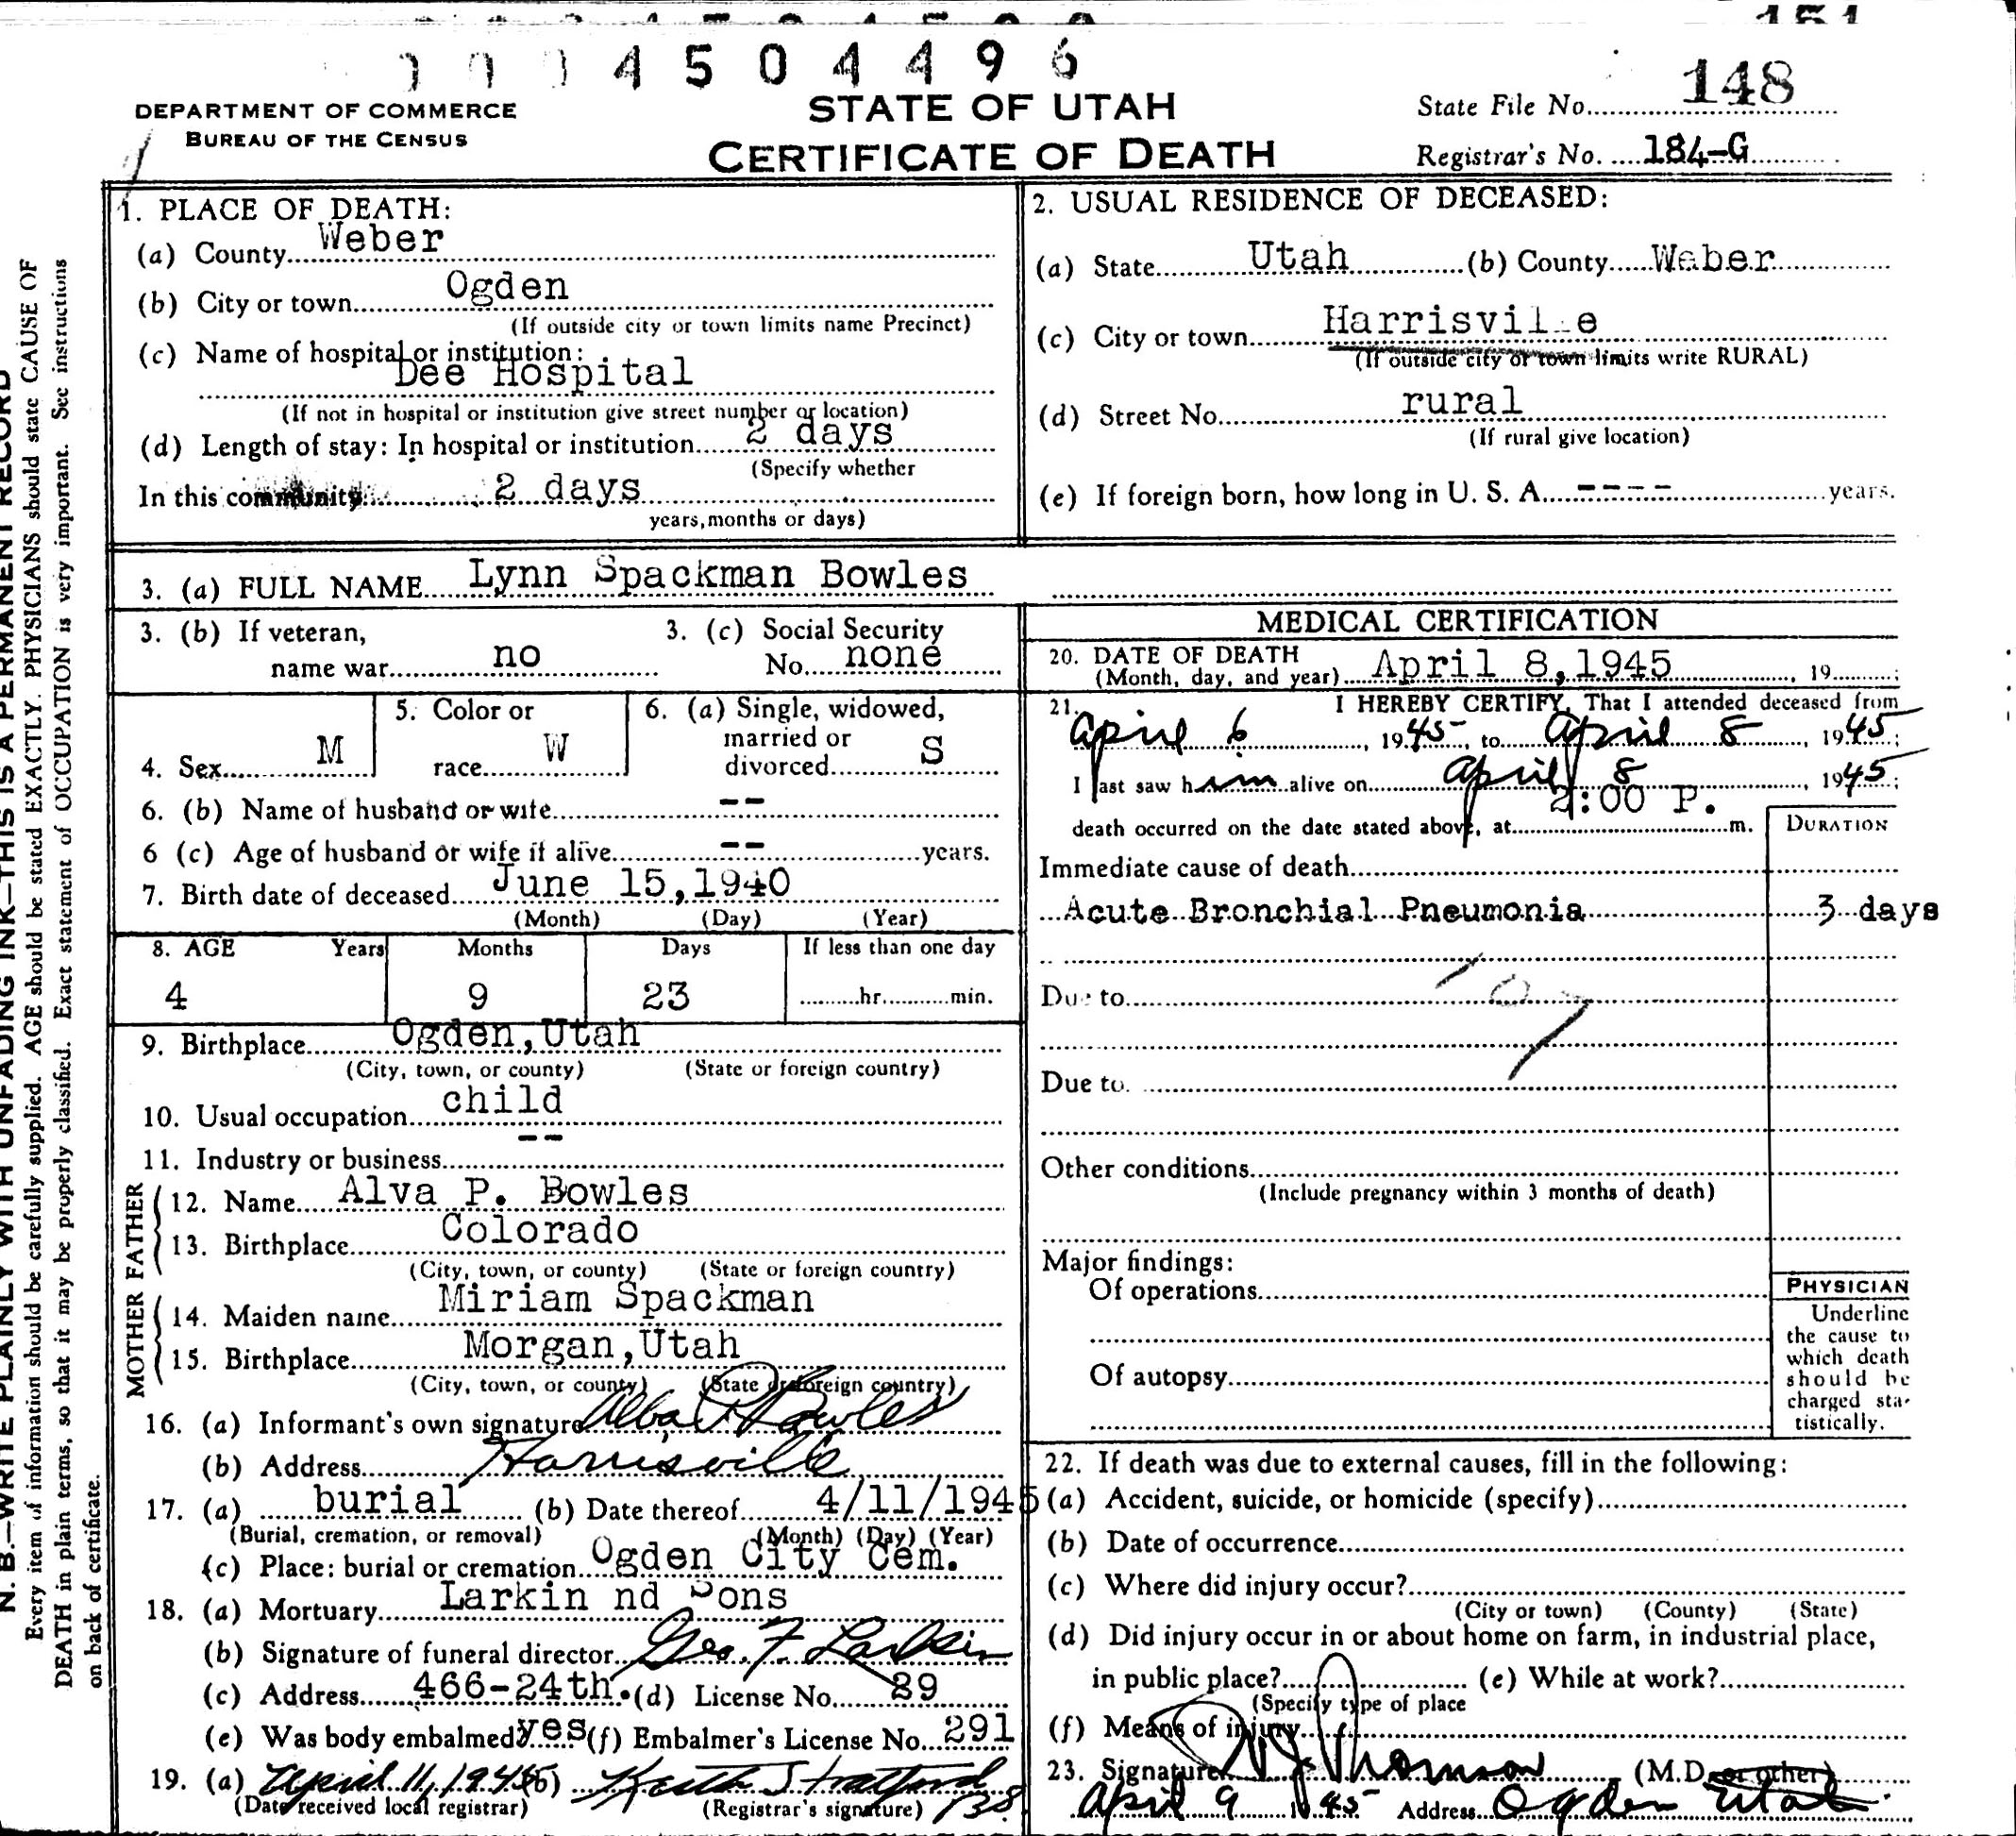 4 5 0 4 4 9 6
151
DEPARTMENT OF COMMERCE
BUREAU OF THE CENSUS
STATE OF UTAH
CERTIFICATE OF DEATH
State File No. 148
Registrar's No. 184-G
1. PLACE OF DEATH:
(a) County Weber
(b) City or town Ogden
(If outside city or town limits name Precinct)
(c) Name of hospital or institution:
Dee Hospital
(If not in hospital or institution give street number or location)
(d) Length of stay: In hospital or institution 2 days
(Specify whether
In this community 2 days
years, months or days)
2. USUAL RESIDENCE OF DECEASED:
(a) State Utah (b) County Weber
(c) City or town Harrisville
(If outside city or town limits write RURAL)
(d) Street No. rural
(If rural give location)
(e) If foreign born, how long in U. S. A. ---- years.
3. (a) FULL NAME Lynn Spackman Bowles
3. (b) If veteran,
name war no
3. (c) Social Security
No. none
4. Sex M
5. Color or
race W
6. (a) Single, widowed,
married or
divorced S
6. (b) Name of husband or wife --
6 (c) Age of husband or wife if alive -- years.
7. Birth date of deceased June 15,1940
(Month) (Day) (Year)
8. AGE Years Months Days If less than one day
4 9 23 hr. min.
9. Birthplace Ogden,Utah
(City, town, or county) (State or foreign country)
10. Usual occupation child
11. Industry or business --
FATHER
12. Name Alva P. Bowles
13. Birthplace Colorado
(City, town, or county) (State or foreign country)
MOTHER
14. Maiden name Miriam Spackman
15. Birthplace Morgan,Utah
(City, town, or county) (State or foreign country)
16. (a) Informant's own signature Alba P Bowles
(b) Address Harrisville
17. (a) burial (b) Date thereof 4/11/1945
(Burial, cremation, or removal) (Month) (Day) (Year)
(c) Place: burial or cremation Ogden City Cem.
18. (a) Mortuary Larkin nd Sons
(b) Signature of funeral director Geo. F. Larkin
(c) Address 466-24th. (d) License No. 89
(e) Was body embalmed yes (f) Embalmer's License No. 291
19. (a) April 11, 1945 (b) Keith Stratford
(Date received local registrar) (Registrar's signature) 138
MEDICAL CERTIFICATION
20. DATE OF DEATH
(Month, day, and year) April 8,1945, 19 ;
21. I HEREBY CERTIFY, That I attended deceased from
April 6, 1945, to April 8, 1945;
I last saw him alive on April 8, 1945;
death occurred on the date stated above, at 2:00 P. m.
DURATION
Immediate cause of death
Acute Bronchial Pneumonia 3 days
Due to
107
Due to.
Other conditions
(Include pregnancy within 3 months of death)
Major findings:
Of operations
Of autopsy
PHYSICIAN
Underline
the cause to
which death
should be
charged sta-
tistically.
22. If death was due to external causes, fill in the following:
(a) Accident, suicide, or homicide (specify)
(b) Date of occurrence
(c) Where did injury occur?
(City or town) (County) (State)
(d) Did injury occur in or about home on farm, in industrial place,
in public place? (e) While at work?
(Specify type of place
(f) Means of injury
23. Signature Thomson (M.D. or other)
April 9 1945 Address Ogden Utah
N. B.—WRITE PLAINLY WITH UNFADING INK—THIS IS A PERMANENT RECORD
Every item of information should be carefully supplied. AGE should be stated EXACTLY. PHYSICIANS should state CAUSE OF
DEATH in plain terms, so that it may be properly classified. Exact statement of OCCUPATION is very important. See instructions
on back of certificate.